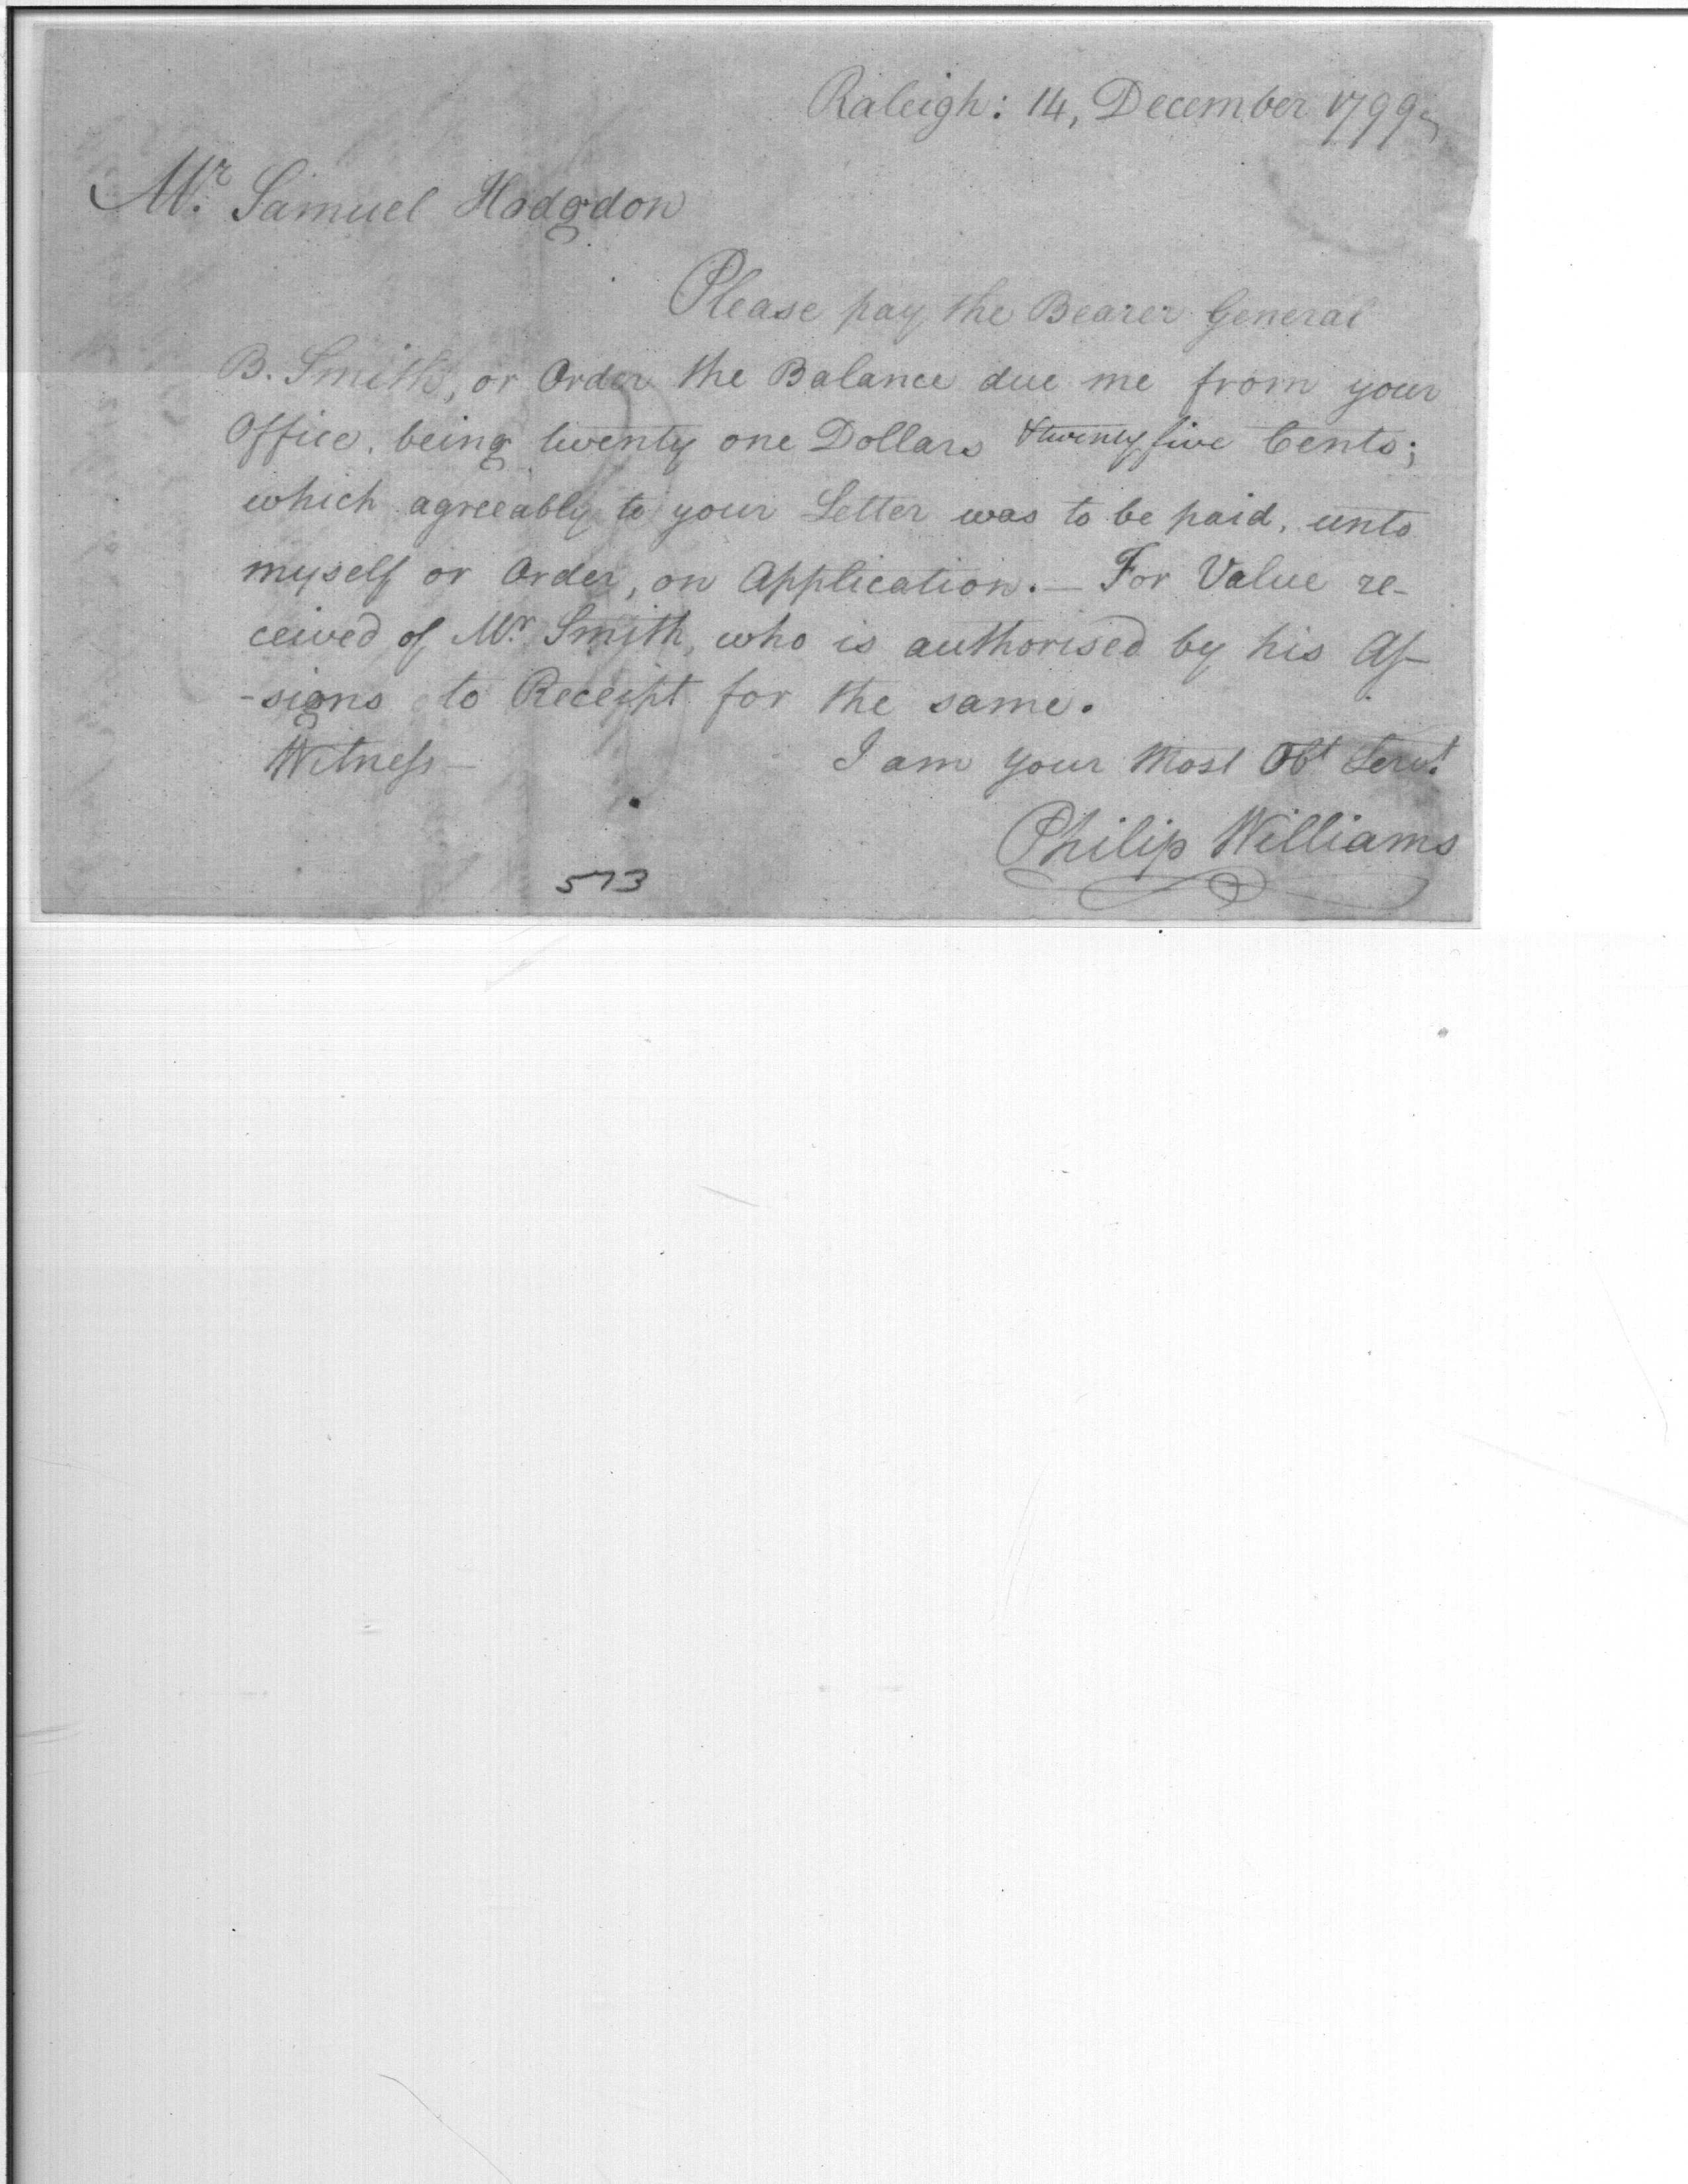 Raleigh: 14, December 1799
Mr. Samuel Hodgdon
Please pay the Bearer General
B. Smith, or Order the Balance due me from your
Office, being twenty one Dollars & twenty five Cents;
which agreeably to your Letter was to be paid, unto
myself or Order, on Application. — For Value re-
ceived of Mr. Smith, who is authorised by his As-
-signs to Receipt for the same.
Witness —
I am your Most Obt Servt.
Philip Williams
573